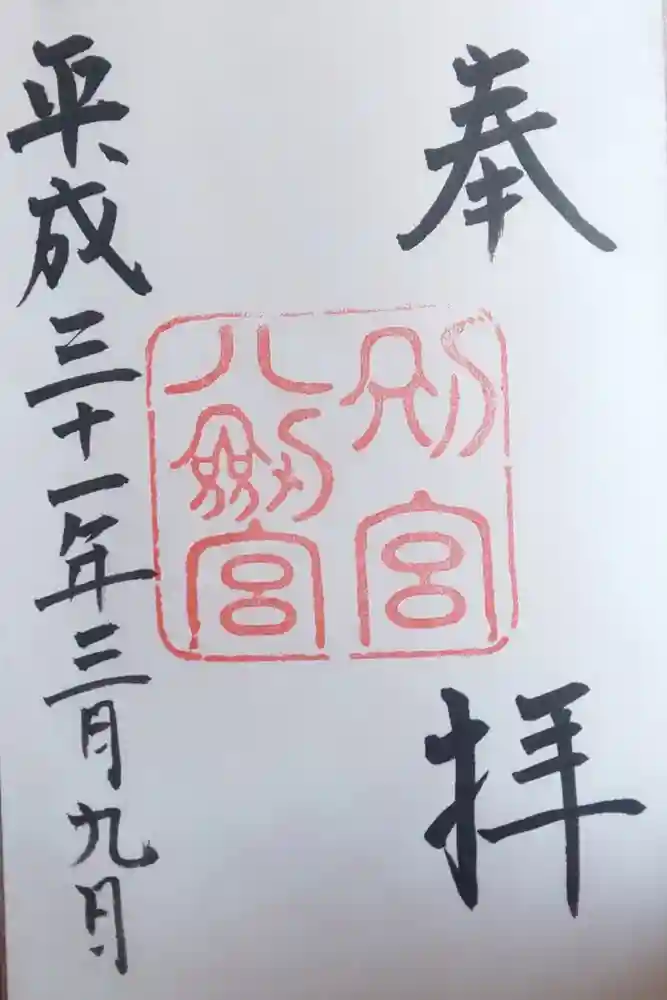 奉拝
別宮
八劔宮
平成三十一年三月九日